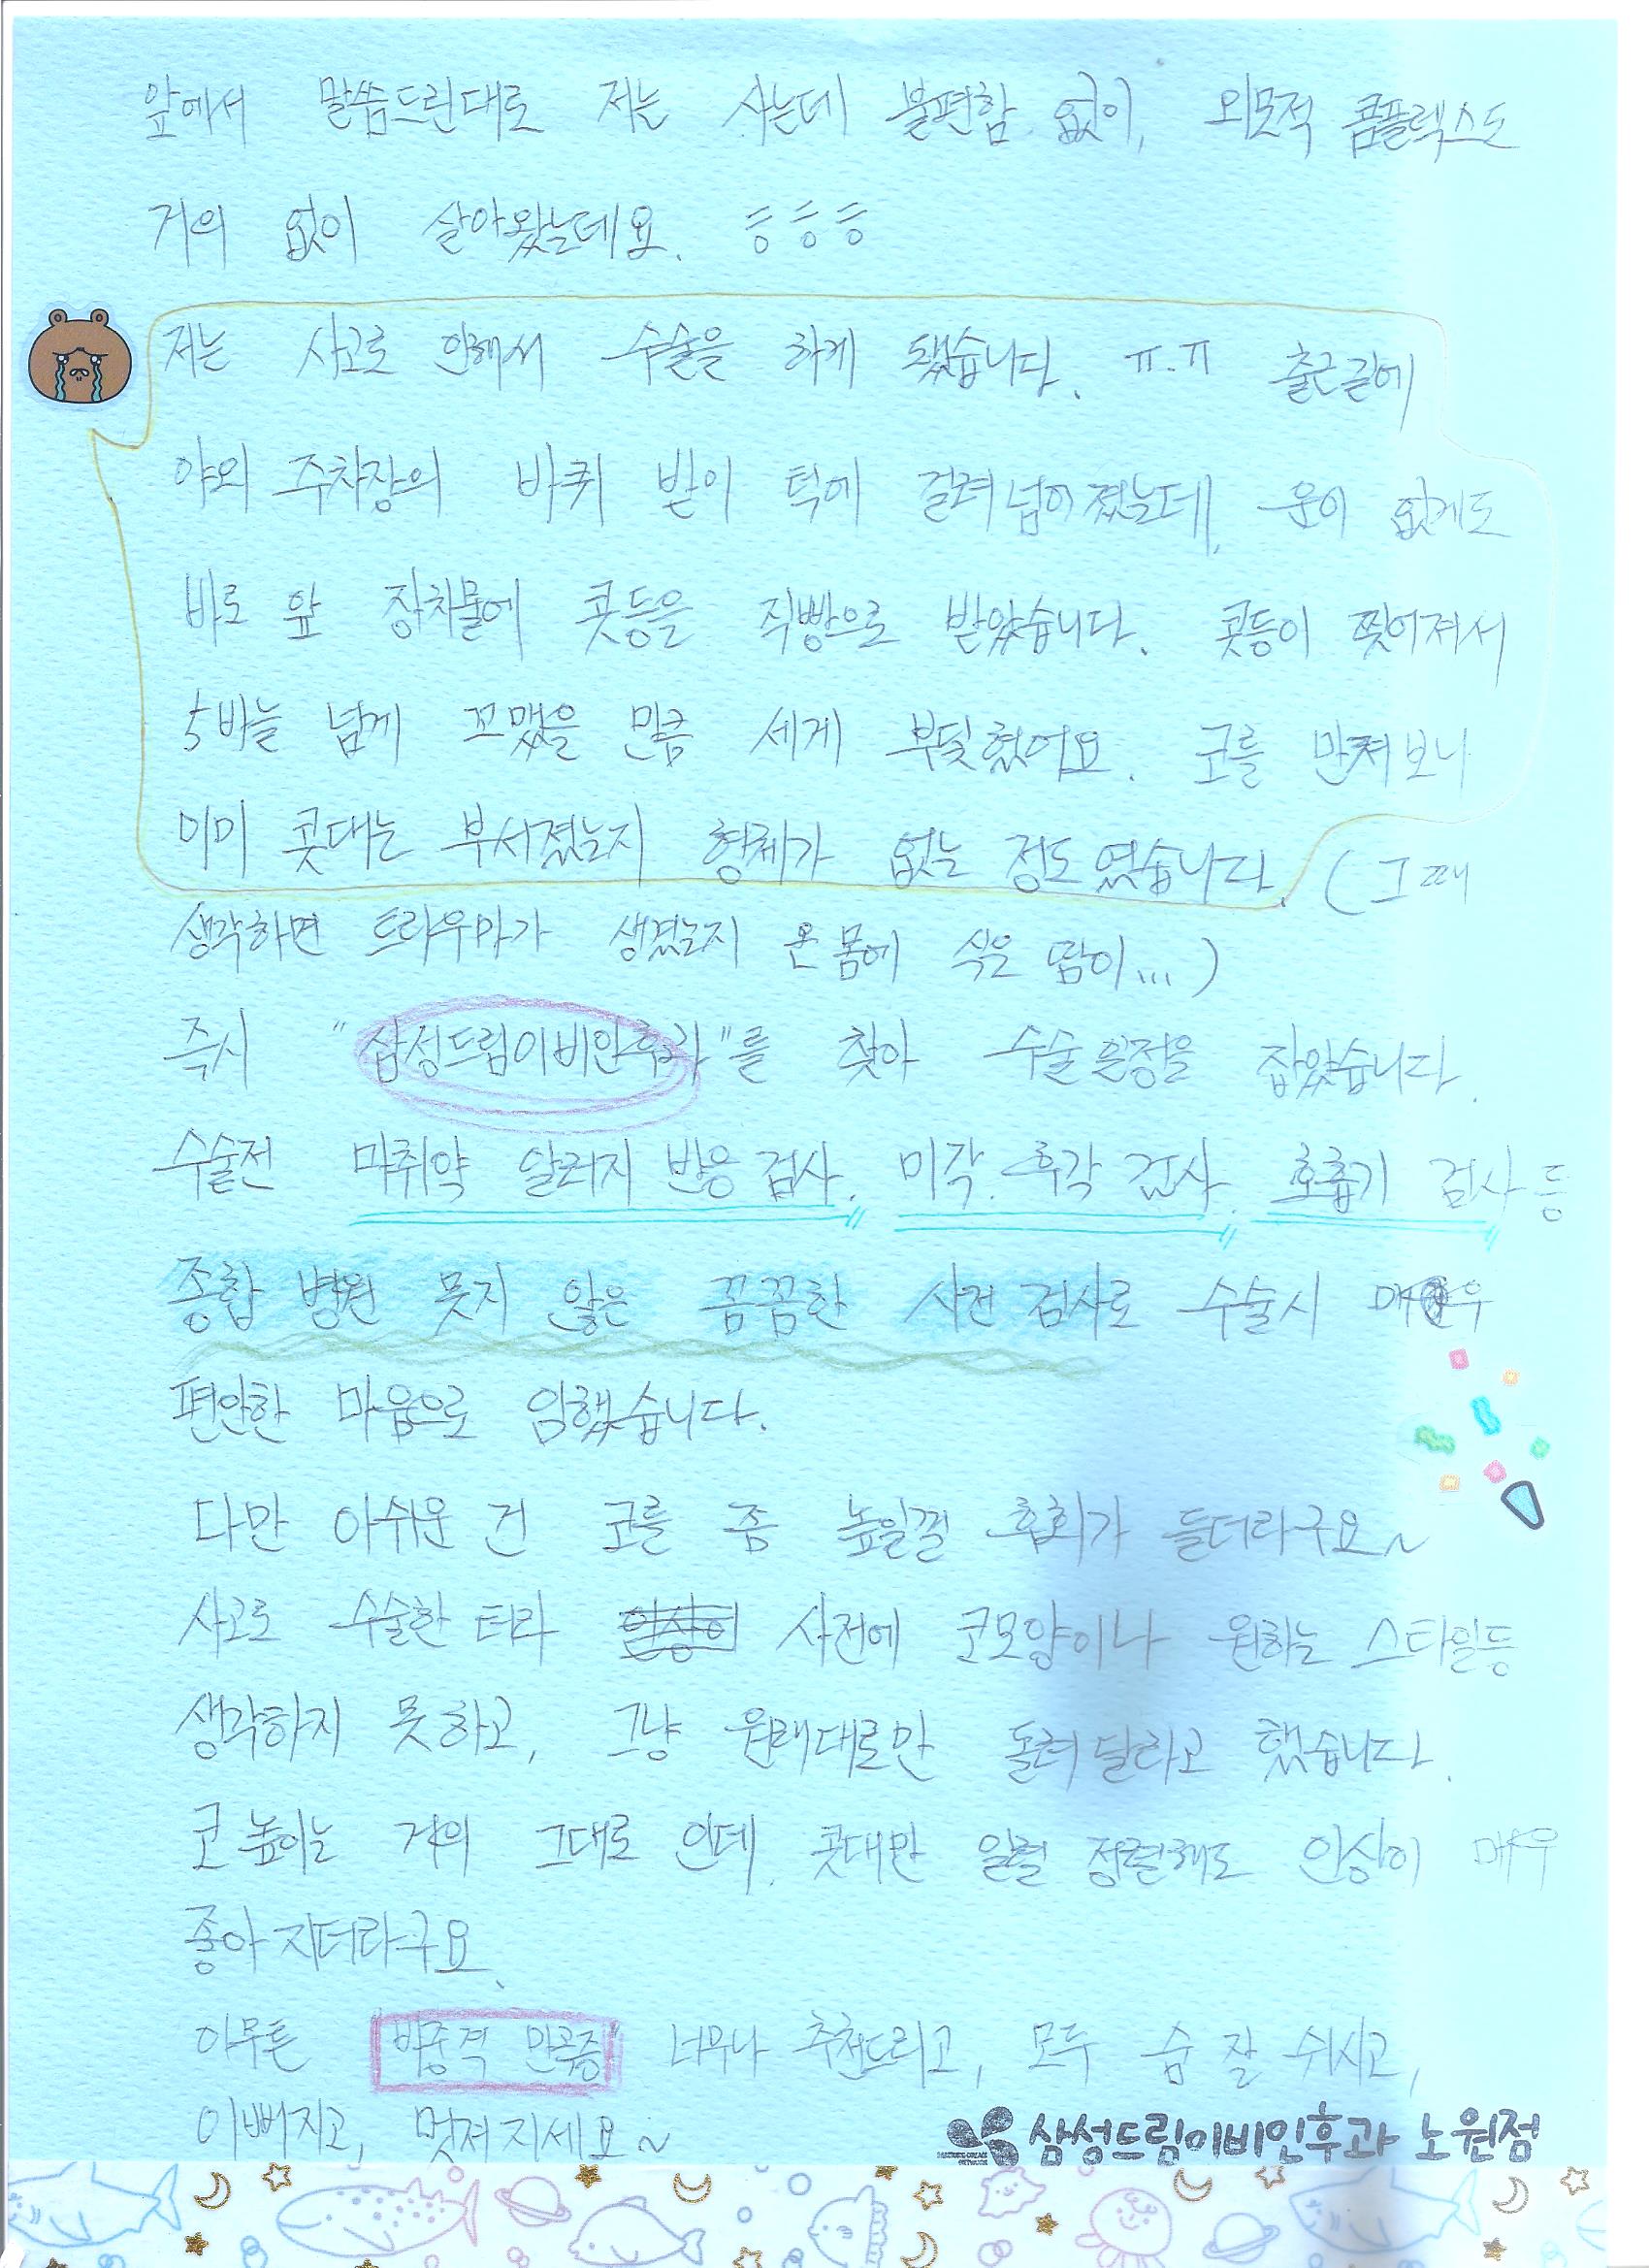 앞에서 말씀드린대로 저는 사는데 불편함 없이, 외모적 콤플렉스도
거의 없이 살아왔는데요. ㅎㅎㅎ
저는 사고로 인해서 수술을 하게 됐습니다. ㅠ.ㅠ 출근길에
야외 주차장의 바퀴 받이 턱에 걸려 넘어졌는데, 운이 없게도
바로 앞 장치물에 콧등을 직빵으로 받았습니다. 콧등이 찢어져서
5바늘 넘게 꼬맸을 만큼 세게 부딪혔어요. 코를 만져보니
이미 콧대는 부서졌는지 형체가 없는 정도였습니다. (그때
생각하면 트라우마가 생겼는지 온 몸에 식은 땀이...)
즉시 "삼성드림이비인후과"를 찾아 수술 일정을 잡았습니다.
수술전 마취약 알러지 반응 검사, 미각.후각 검사, 호흡기 검사 등
종합 병원 못지 않은 꼼꼼한 사전 검사로 수술시 매우
편안한 마음으로 임했습니다.
다만 아쉬운 건 코를 좀 높일껄 후회가 들더라구요~
사고로 수술한 터라 사전에 코모양이나 원하는 스타일등
생각하지 못하고, 그냥 원래대로만 돌려달라고 했습니다.
코 높이는 거의 그대로 인데, 콧대만 일렬 정렬해도 인상이 매우
좋아지더라구요.
아무튼 "비중격 만곡증" 너무나 추천드리고, 모두 숨 잘 쉬시고,
이뻐지고, 멋져지세요~
삼성드림이비인후과 노원점